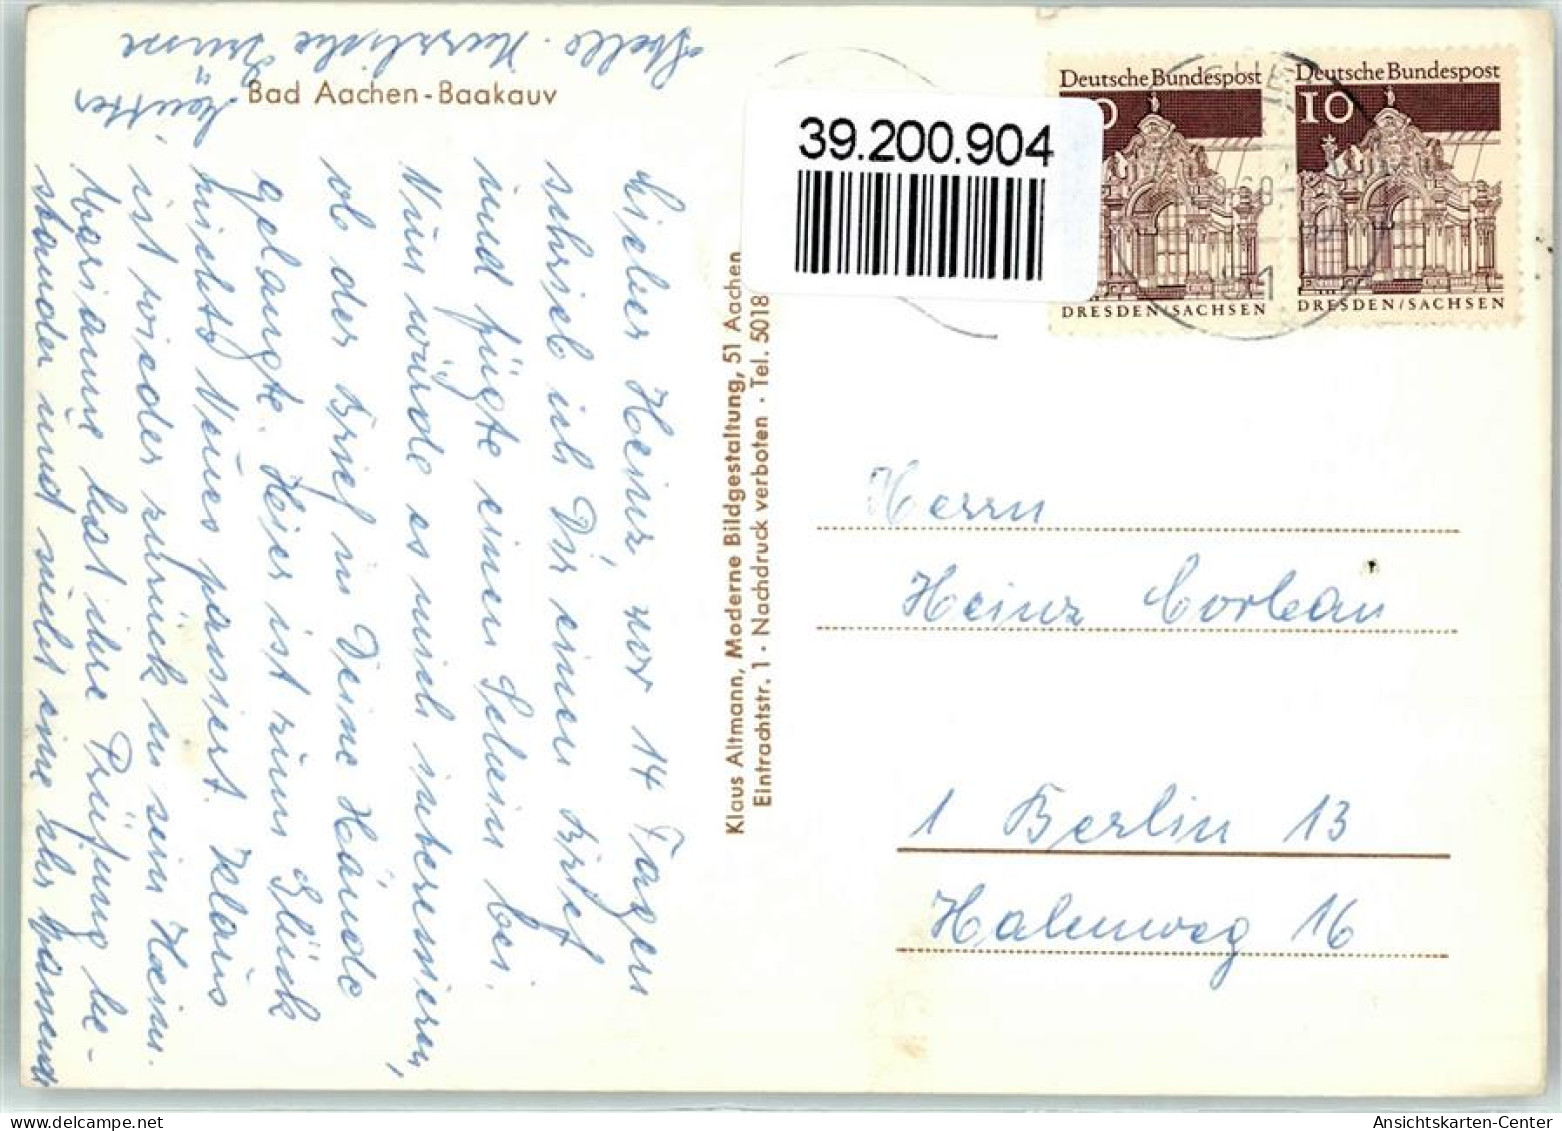 Bad Aachen-Baakauv
Lieber Heinz, vor 14 Tagen
schrieb ich Dir einen Brief
und fügte einen Schein bei.
Nun würde es mich interessieren,
ob der Brief in Deine Hände
gelangte. Hier ist zum Glück
nichts Neues passiert. Klaus
ist wieder zurück in sein Heim.
Marianne hat ihre Prüfung be-
standen und sucht eine ihr passende
Stelle. Herzliche Grüsse
Mutter
Klaus Altmann, Moderne Bildgestaltung, 51 Aachen
Eintrachtstr. 1 · Nachdruck verboten · Tel. 5018
39.200.904
Deutsche Bundespost
DRESDEN/SACHSEN
Deutsche Bundespost
10
DRESDEN/SACHSEN
Herrn
Heinz Corbeau
1 Berlin 13
Halemweg 16
Ansichtskarten-Center